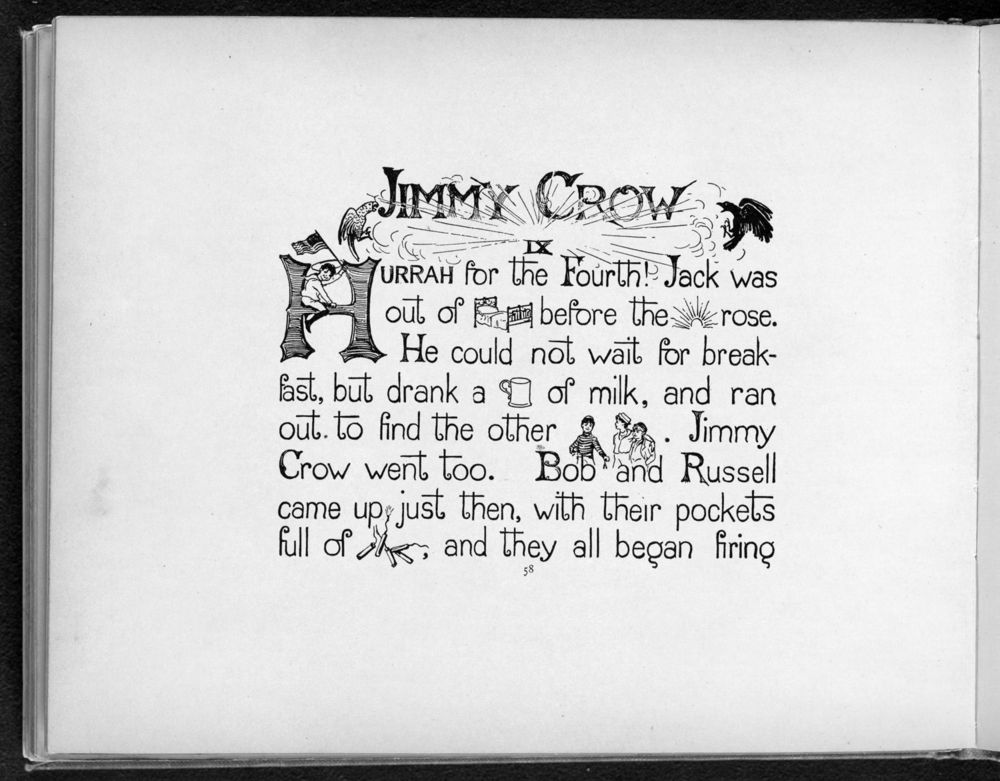 JIMMY CROW
IX
HURRAH for the Fourth! Jack was
out of before the rose.
He could not wait for break-
fast, but drank a of milk, and ran
out to find the other . Jimmy
Crow went too. Bob and Russell
came up just then, with their pockets
full of ; and they all began firing
58